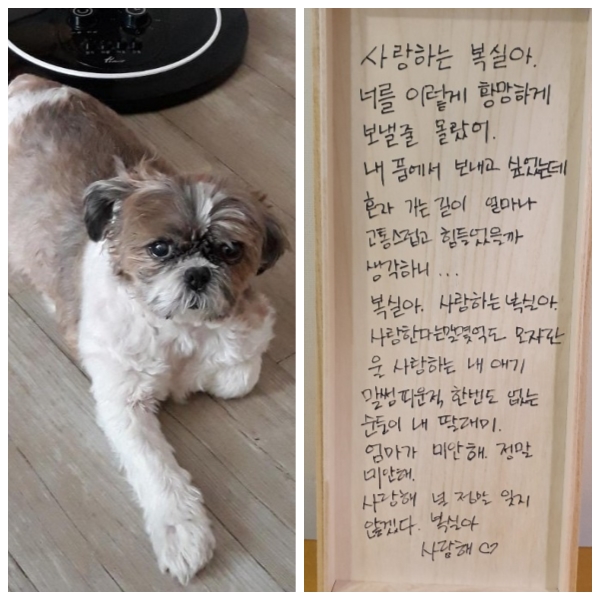 사랑하는 복실아.
너를 이렇게 황망하게
보낼줄 몰랐어.
내 품에서 보내고 싶었는데
혼자 가는 길이 얼마나
고통스럽고 힘들었을까
생각하니...
복실아. 사랑하는 복실아.
사랑한다는말몇억도 모자란
울 사랑하는 내 애기
말썽피운적 한번도 없는
순둥이 내 딸래미.
엄마가 미안해. 정말
미안해.
사랑해 널 정말 잊지
않겠다. 복실아
사랑해 ♡